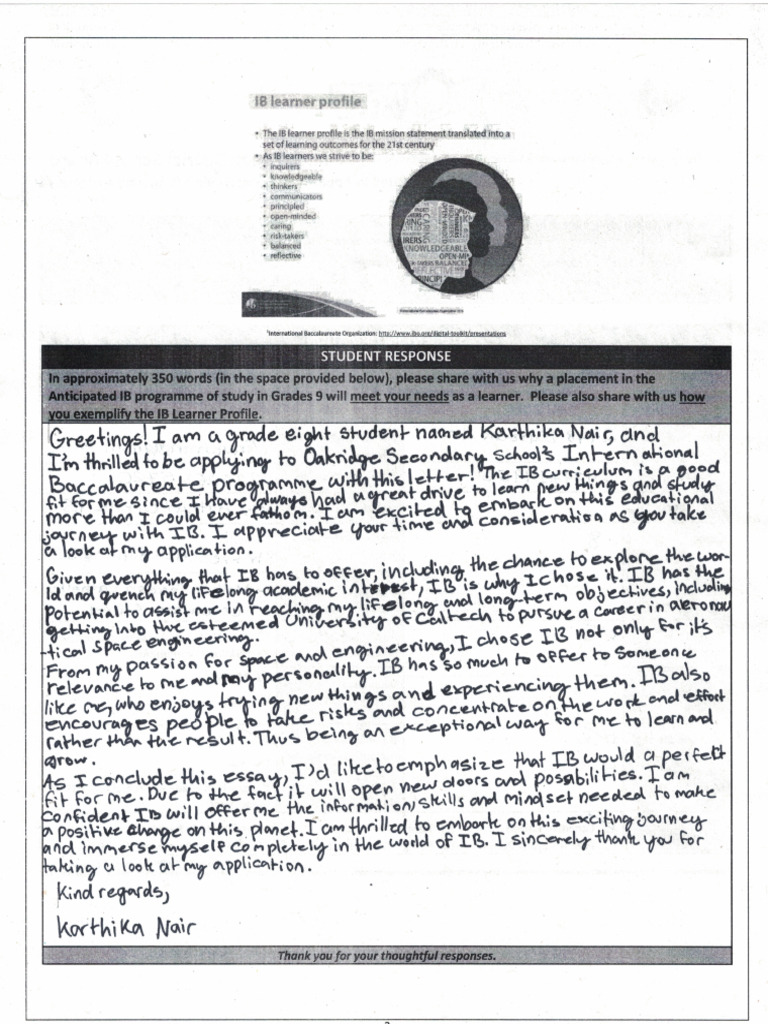 IB learner profile
• The IB learner profile is the IB mission statement translated into a
set of learning outcomes for the 21st century
• As IB learners we strive to be:
• inquirers
• knowledgeable
• thinkers
• communicators
• principled
• open-minded
• caring
• risk-takers
• balanced
• reflective
CARING
KNOWLEDGEABLE
OPEN-MI
BALANCED
PRINCIPL
¹International Baccalaureate Organization: http://www.ibo.org/digital-toolkit/presentations
STUDENT RESPONSE
In approximately 350 words (in the space provided below), please share with us why a placement in the
Anticipated IB programme of study in Grades 9 will meet your needs as a learner. Please also share with us how
you exemplify the IB Learner Profile.
Greetings! I am a grade eight student named Karthika Nair, and
I'm thrilled to be applying to Oakridge Secondary School's International
Baccalaureate programme with this letter! The IB curriculum is a good
fit for me since I have always had a great drive to learn new things and study
more than I could ever fathom. I am excited to embark on this educational
journey with IB. I appreciate your time and consideration as you take
a look at my application.
Given everything that IB has to offer, including the chance to explore the wor-
ld and quench my lifelong academic interest, IB is why I chose it. IB has the
potential to assist me in reaching my lifelong and long-term objectives, including
getting into the esteemed University of Caltech to pursue a career in aeronau
-tical space engineering.
From my passion for space and engineering, I chose IB not only for it's
relevance to me and my personality. IB has so much to offer to someone
like me, who enjoys trying new things and experiencing them. IB also
encourages people to take risks and concentrate on the work and effort
rather than the result. Thus being an exceptional way for me to learn and
grow.
As I conclude this essay, I'd like to emphasize that IB would a perfect
fit for me. Due to the fact it will open new doors and possibilities. I am
confident IB will offer me the information, skills and mindset needed to make
a positive change on this planet. I am thrilled to embark on this exciting journey
and immerse myself completely in the world of IB. I sincerely thank you for
taking a look at my application.
Kind regards,
Karthika Nair
Thank you for your thoughtful responses.